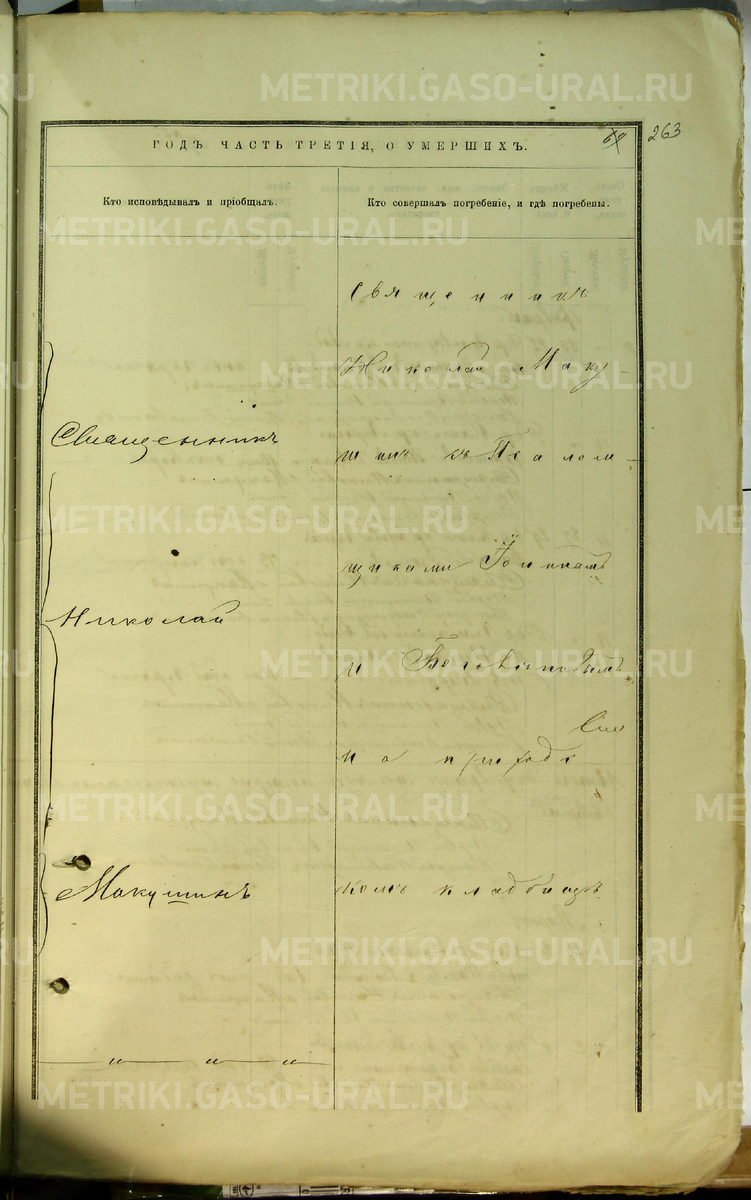 METRIKI.GASO-URAL.RU
263
ГОДЪ ЧАСТЬ ТРЕТІЯ, О УМЕРШИХЪ.
Кто исповѣдывалъ и пріобщалъ.
Кто совершалъ погребеніе, и гдѣ погребены.
Священникъ
Николай Маку-
шинъ съ Псалом-
щиками
и
на приход
комъ кладбищѣ
Священникъ
Николай
Макушинъ